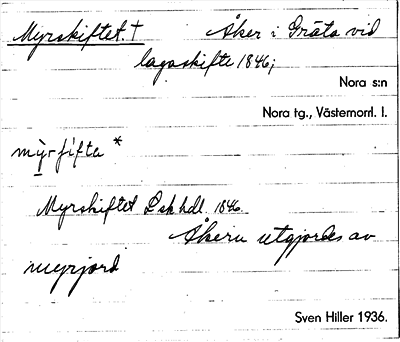 Myrskiftet. † Åker i Gräta vid
lagaskifte 1846;
Nora s:n
Nora tg., Västernorrl. l.
Myrskiftet Lskhdl. 1846.
Åkern utgjordes av
myrjord
Sven Hiller 1936.